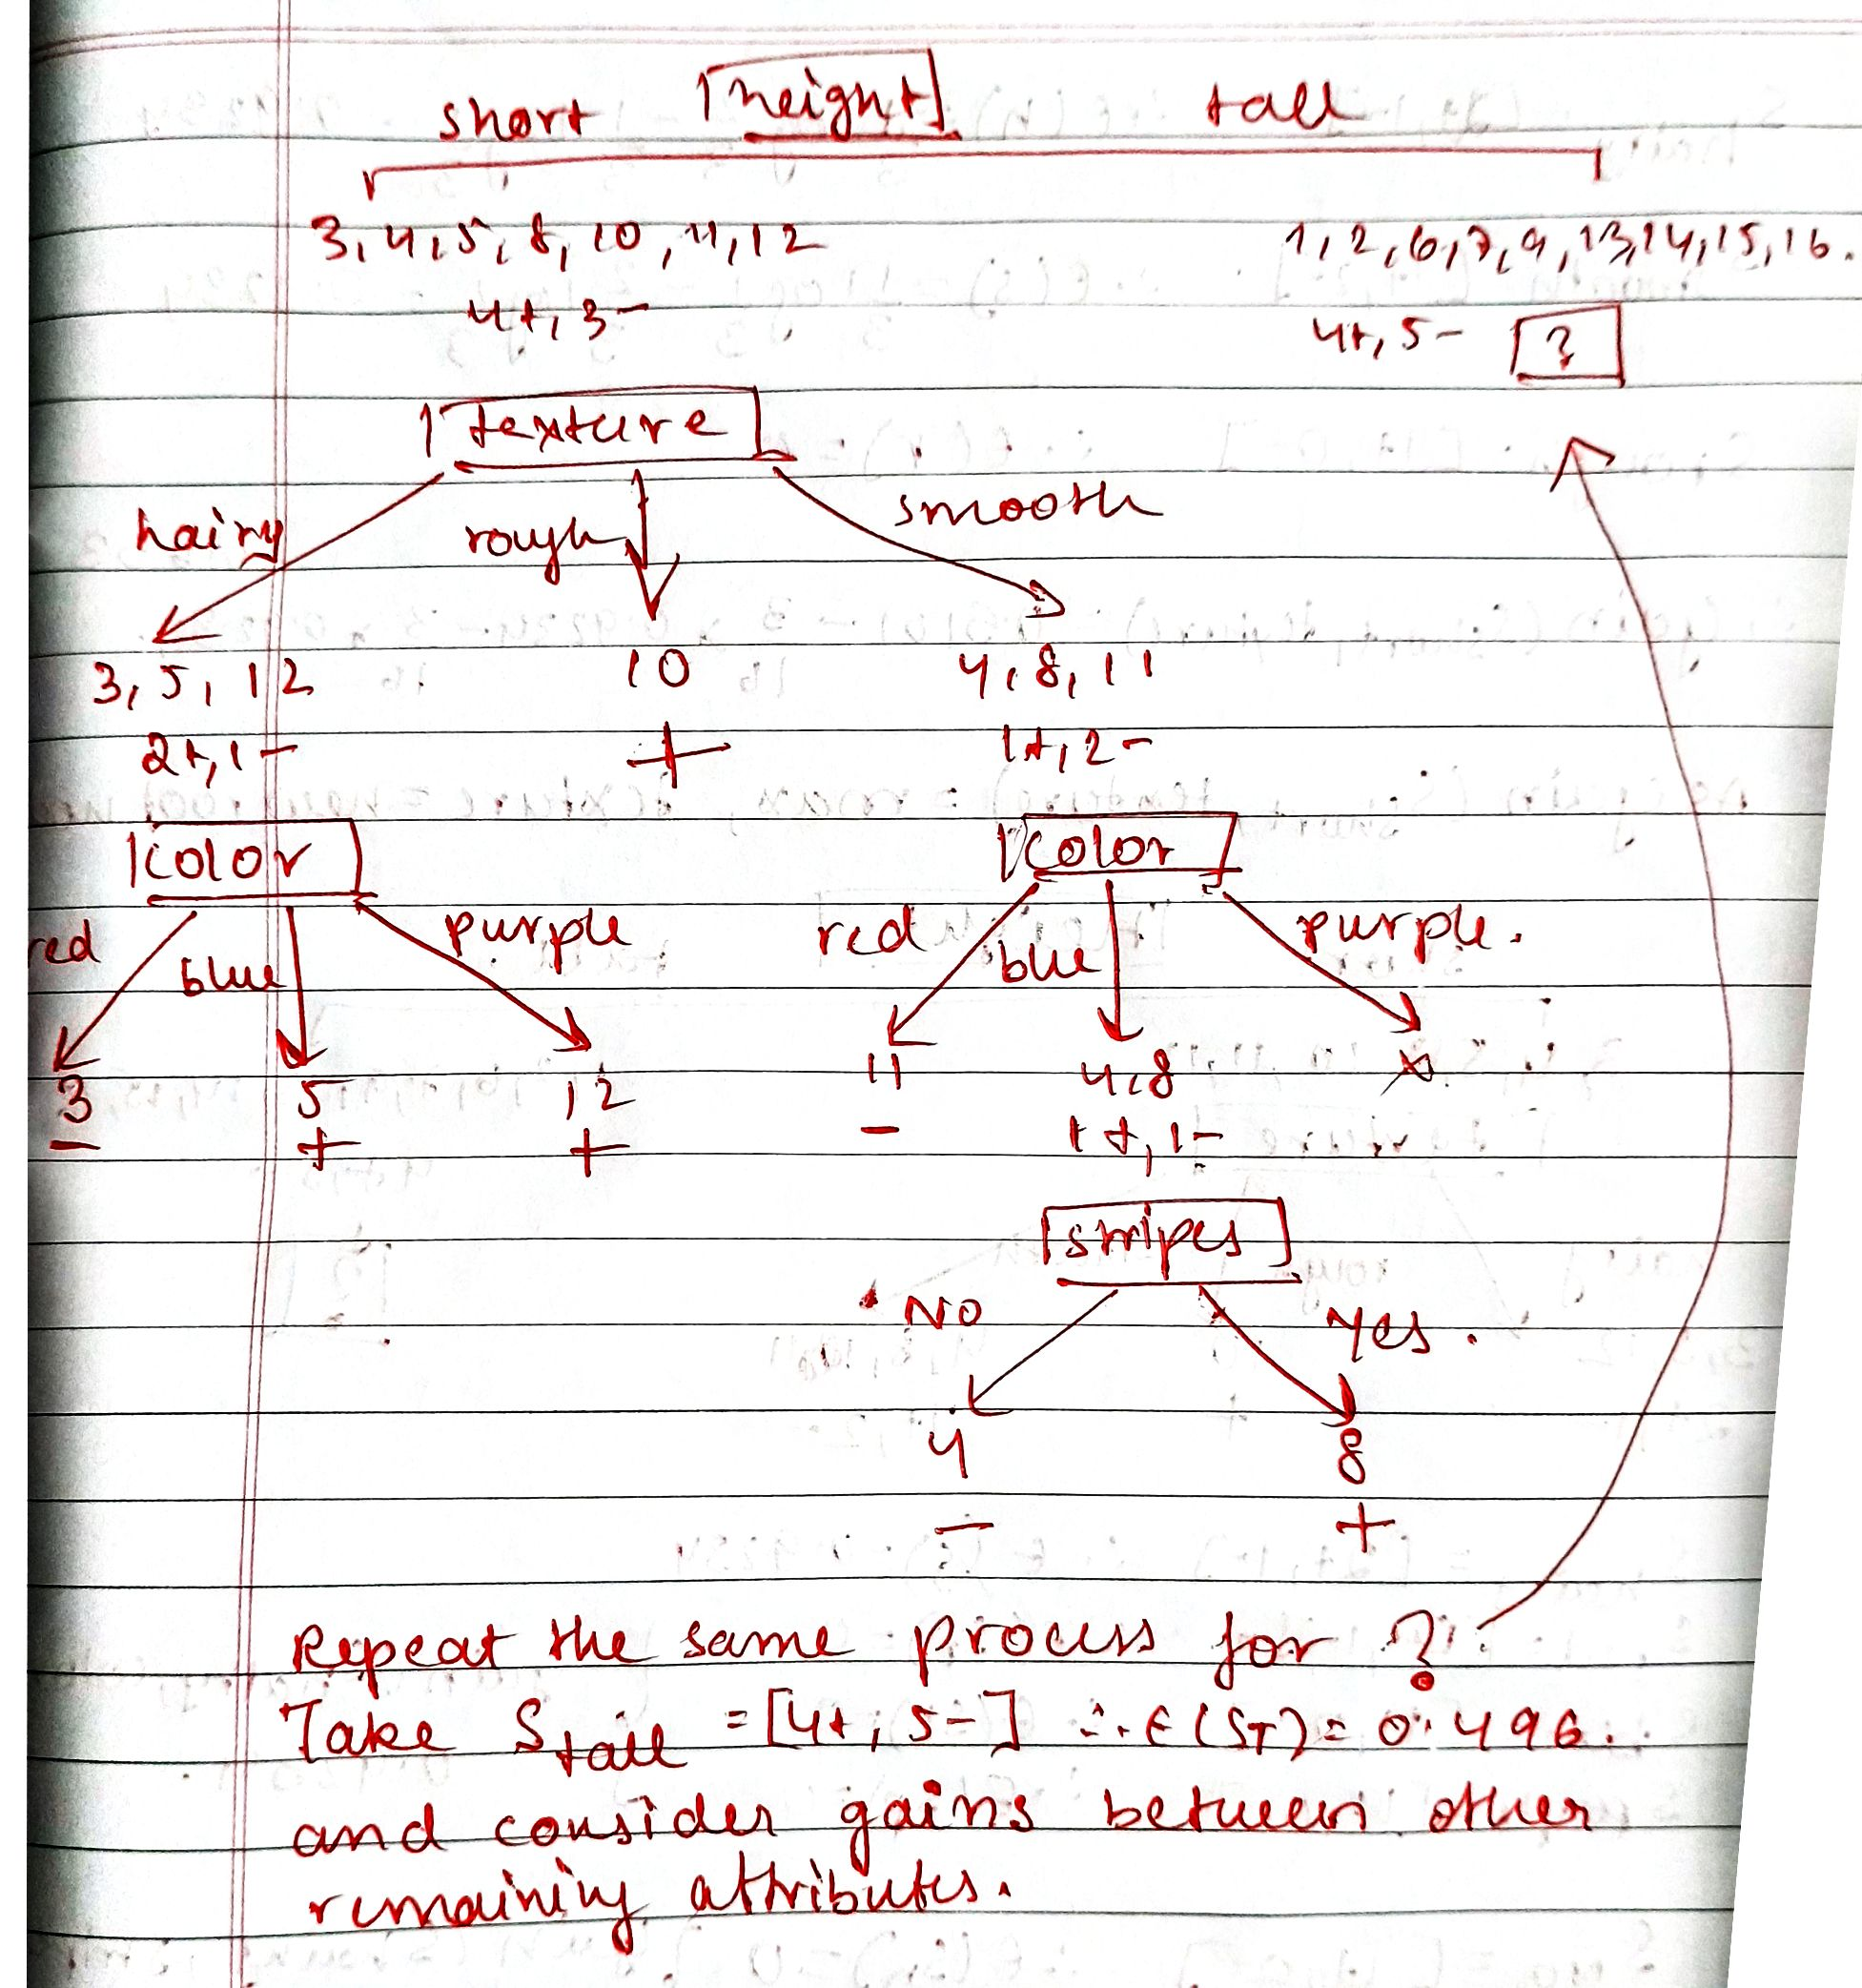 short height tall
3, 4, 5, 8, 10, 11, 12 1, 2, 6, 7, 9, 13, 14, 15, 16.
4+, 3- 4+, 5- ?
texture
hairy rough smooth
3, 5, 12 10 4, 8, 11
2+, 1- + 1+, 2-
color color
red blue purple red blue purple.
3 5 12 11 4, 8 x
- + + - 1+, 1-
stripes
NO yes.
4 8
- +
Repeat the same process for ?
Take Stall = [4+, 5-] ∴ E(ST) = 0.496.
and consider gains between other
remaining attributes.